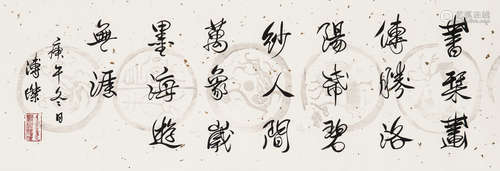 書琹畫
傳勝洛
陽碧
紗人間
萬象歲
墨海遊
無涯
庚午冬日
溥傑